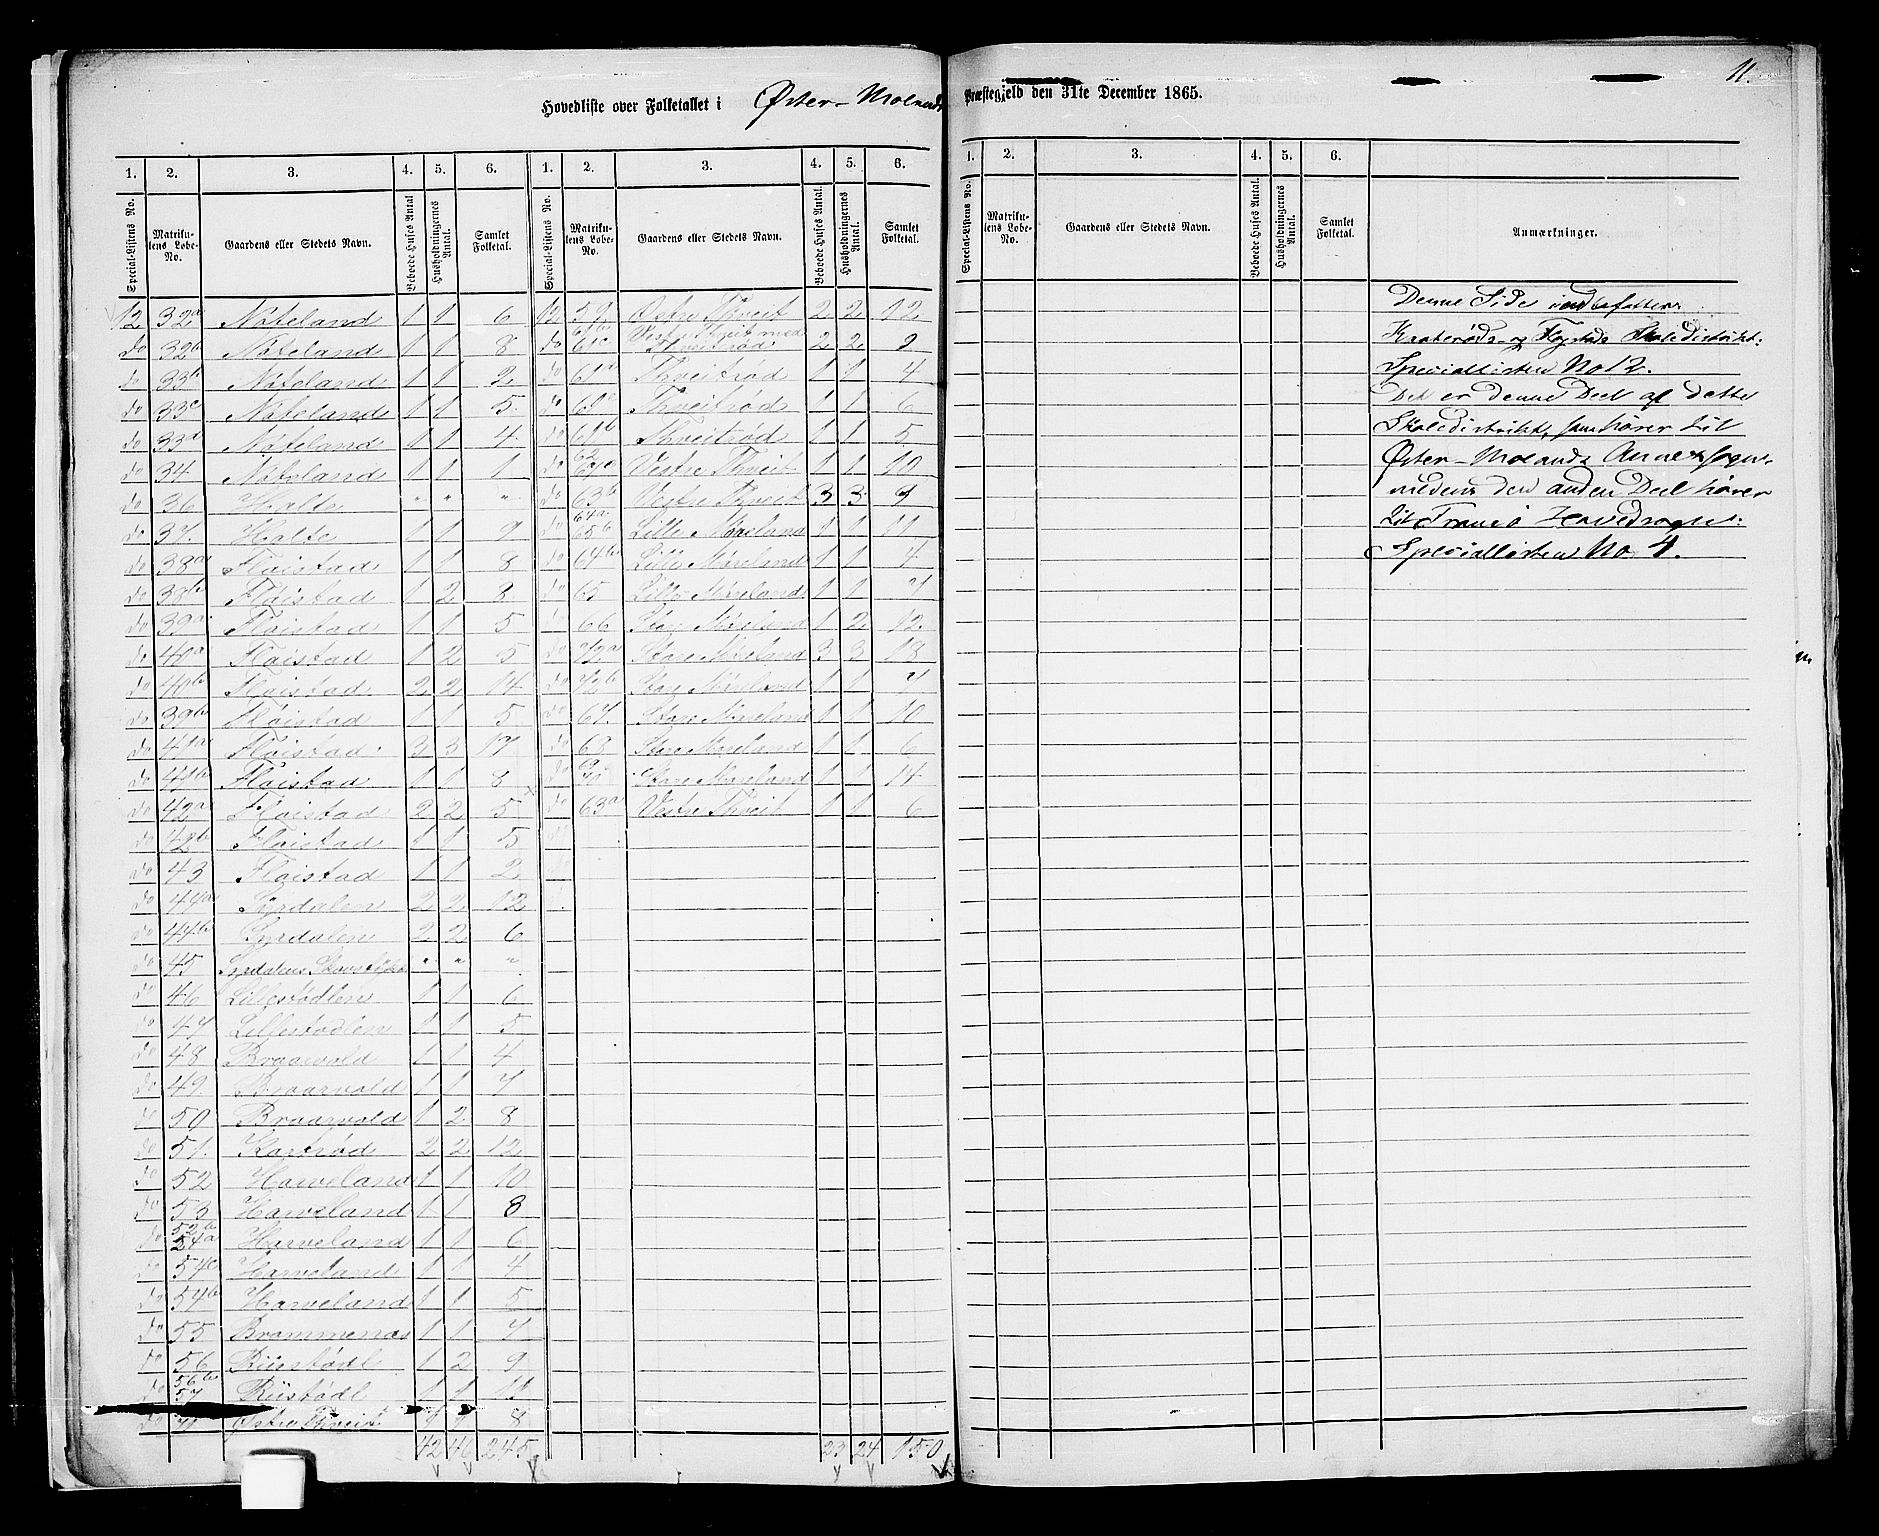 11.
Hovedliste over Folketallet i Øster-Molands Præstegjeld den 31te December 1865.
1. 2. 3. 4. 5. 6. 1. 2. 3. 4. 5. 6.
Special-Listens No. Matrikulens Løbe-No. Gaardens eller Stedets Navn. Beboede Huses Antal Husholdningernes Antal. Samlet Folketal. Special-Listens No. Matrikulens Løbe-No. Gaardens eller Stedets Navn. Beboede Huses Antal. Husholdningernes Antal. Samlet Folketal.
12 32a Nateland 1 1 6
do 32b Nateland 1 1 8
do 33b Nateland 1 1 2
do 33c Nateland 1 1 5
do 33d Nateland 1 1 4
do 34 Nateland 1 1 1
do 36 Halte " " "
do 37. Halte 1 1 9
do 38a Flaistad 1 1 8
do 38b Flaistad 1 2 8
do 39a Flaistad 1 1 5
do 40a Flaistad 1 2 5
do 40b Flaistad 2 2 14
do 39b Flaistad 1 1 5
do 41a Flaistad 3 3 17
do 41b Flaistad 1 1 8
do 42a Flaistad 2 2 5
do 42b Flaistad 1 1 5
do 43 Flaistad 1 1 2
do 44a Syrdalen 2 2 12
do 44b Syrdalen 2 2 6
do 45 Syrdalens " " "
do 46 Lillestødlen 1 1 6
do 47 Lillestødlen 1 1 5
do 48 Braarvold 1 1 4
do 49. Braarvold 1 1 7
do 50 Braarvold 1 2 8
do 51. Kastrød 2 2 12
do 52 Harveland 1 1 10
do 53 Harveland 1 1 8
do 52b 54a Harveland 1 1 6
do 54c Harveland 1 1 4
do 54b Harveland 1 1 5
do 55 Brommenæs 1 1 7
do 56 Riistødl 1 2 9
do 56b 57 Riistødl 1 1 11
do Østre Thveit 1 1 8
42 46 245
12 59 Østre Thveit 2 2 12
do 61c Vestre Thveit med Thveitrød 2 2 9
do 61d Thveitrød 1 1 4
do 61e Thveitrød 1 1 6
do 61b Thveitrød 1 1 5
do 62 Vestre Thveit 1 1 10
do 63b Vestre Thveit 3 3 9
do 64a 65b Lille Møreland 1 1 11
do 64b Lille Møreland 1 1 4
do 65 Lille Møreland 1 1 7
66 Store Møreland 1 2 12
do 72a Store Møreland 3 3 18
do 72b Store Møreland 1 1 7
do 67. Store Møreland 1 1 10
do 68 Store Møreland 1 1 6
do Store Møreland 1 1 14
do 63a Vestre Thveit 1 1 6
23 24 150
1. 2. 3. 4. 5. 6.
Special-Listens No. Matrikulens Løbe-No. Gaardens eller Stedets Navn. Beboede Huses Antal. Husholdningernes Antal. Samlet Folketal. Anmærkninger.
Denne Side indbefatter
og Skoledistrikt:
Speciallisten No 12.
Det er denne Deel af dette
Skoledistrikt, som hører til
Øster-Molands Annexsogn,
medens den anden Deel hører
til Tromø Hovedsogn:
Speciallisten No 4.